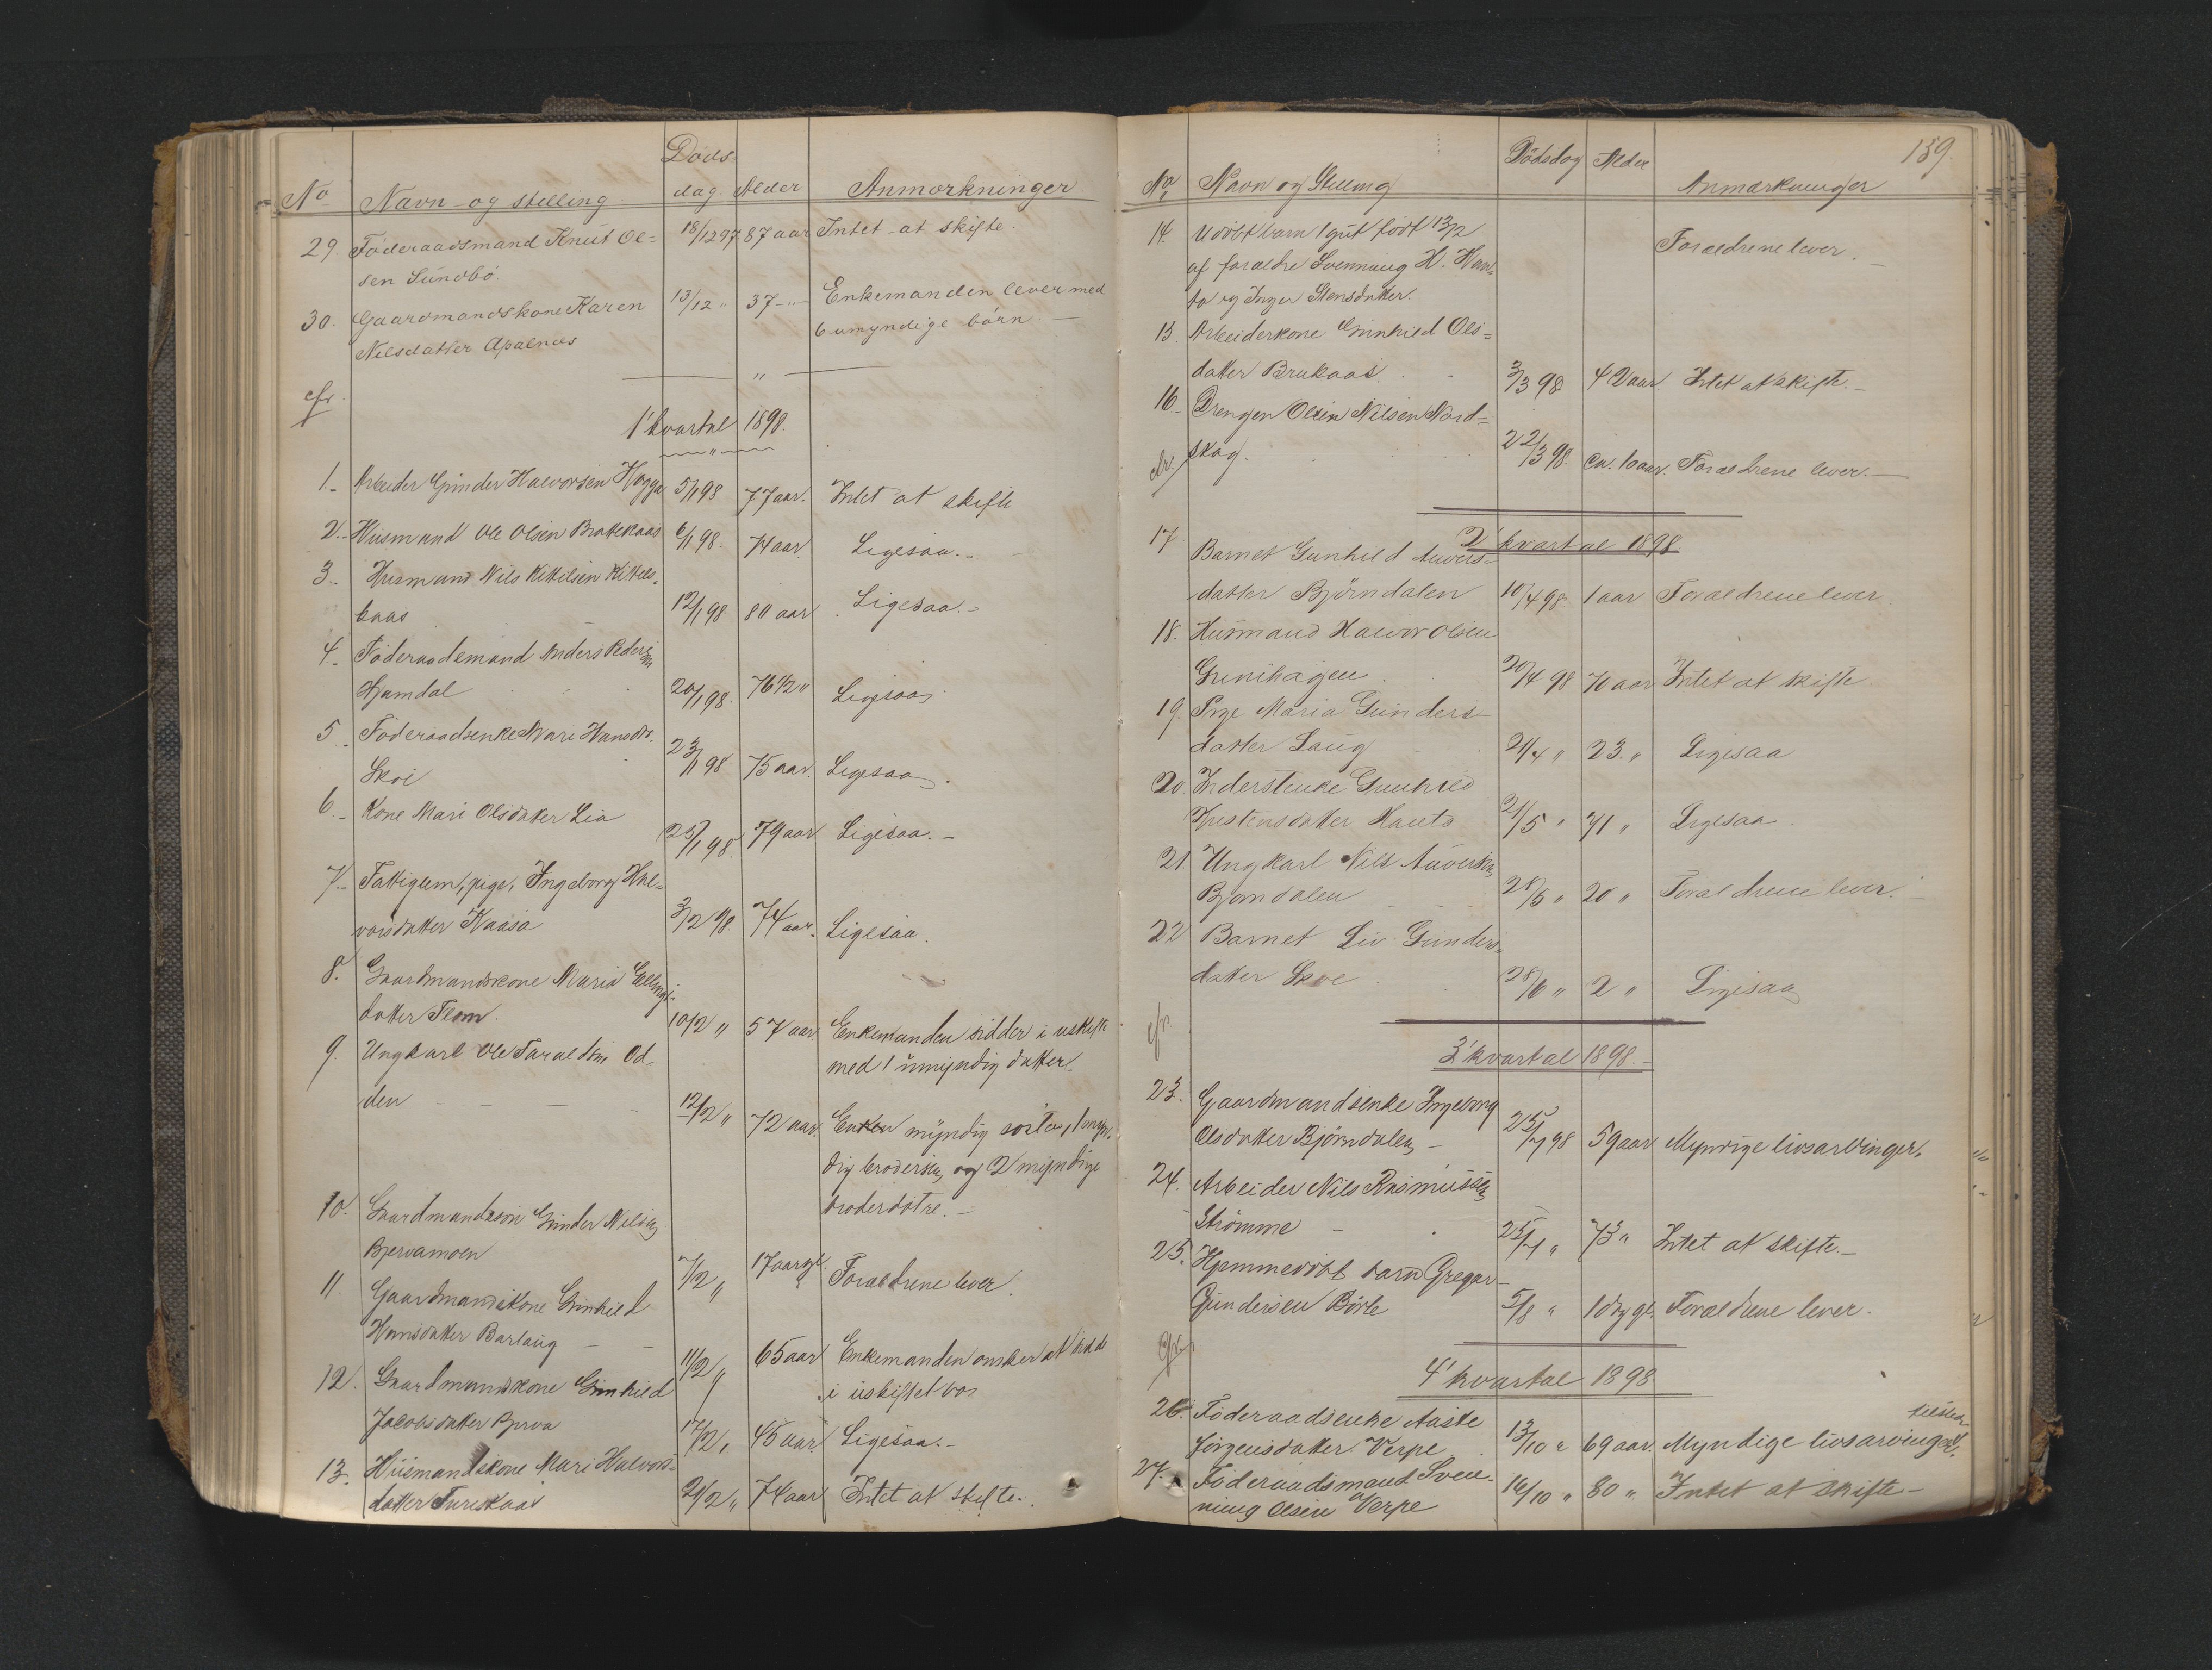 Døds
No Navn og stilling dag. Alder Anmærkninger
29. Føderaadsmand Knut Ol= 18/12 97 87 aar Intet at skifte.
sen Sundbø.
30. Gaardmandskone Karen 13/12 " 37 " Enkemanden lever med
Nilsdatter Apalnæs 6 umyndige børn. —
cfr.
1' kvartal 1898.
1. Arbeider Gunder Halvorsen Hogga 5/1 98 77 aar. Intet at skifte
2. Husmand Ole Olsen Brattekaas 6/1 98. 74 aar. Ligesaa. -
3. Husmand Nils Kittilsen Kittels=
kaas 12/1 98 80 aar Ligesaa. -
4. Føderaadsmand Anders Pedersen
Hjamdal 20/1 98. 76 1/2 " Ligesaa
5. Føderaadsenke Mari Hansdtr.
Skoi 23/1 98 75 aar. Ligesaa.
6. Kone Mari Olsdatter Lia
25/1 98. 79 aar Ligesaa. -
7. Fattiglem, pige, Ingeborg Hal=
vorsdatter Kaasa 3/2 98. 74 aar. Ligesaa.
8. Gaardmandskone Maria Ellings=
datter Flom. 10/2 " 57 aar Enkemanden sidder i uskifte
9. Ungkarl Ole Taraldsen Od= med 1 umyndig datter.
den - - - 12/2 " 72 aar. myndig søster, 1 myn=
dig brodersøn og 2 myndige
broderdøtre. -
10. Gaardmandssøn Gunder Nilsen
Bjervamoen 7/2 " 17 aar gl. Forældrene lever.
11. Gaardmandskone Gunhild
Hansdatter Barlaug - - 11/2 " 65 aar Enkemanden ønsker at sidde
12. Gaardmandskone Gunhild i uskiftet bo.
Jacobsdatter Bjerva 17/2 " 45 aar Ligesaa. -
13. Husmandskone Mari Halvors=
datter Tureskaas 21/2 " 74 aar Intet at skifte.
159.
No Navn og Stilling Dødsdag Alder Anmærkninger
14. Udøbt barn 1 gut født 13/2
af forældre Svenning H. Haut= Forældrene lever. -
to og Inger Stensdatter.
15. Arbeiderkone Gunhild Ols=
datter Brukaas. 3/3 98 42 aar Intet at skifte. -
16. Drengen Olein Nilsen Nord=
skog. 22/3 98. Ca. 10 aar. Forældrene lever. —
cfr.
2' kvartal 1898
17. Barnet Gunhild Auvers=
datter Bjørndalen 10/4 98. 1 aar Forældrene lever
18. Husmand Halvor Olsen
Grinihagen 20/4 98 70 aar Intet at skifte.
19. Pige Maria Gunders=
datter Laug 21/4 " 23. " Ligesaa
20 Inderstenke Gunhild
Hustensdatter Hauto 21/5 " 71 " Ligesaa.
21. Ungkarl Nils Auversen
Bjørndalen 28/5 " 20 " Forældrene lever. -
22 Barnet Liv Gunders=
datter Skoe 28/6 " 2 " Ligesaa
cfr.
3' kvartal 1898. -
23. Gaardmandsenke Ingeborg
Olsdatter Bjørndalen - 25/7 98 59 aar Myndige livsarvinger.
24. Arbeider Nils Rasmussen
Strømme - 25/7 " 73 " Intet at skifte. -
25. Hjemmedøbt barn Gregar
Gundersen Børte 5/8 " 1 dag gl. Forældrene lever.
cfr.
4' kvartal 1898.
26. Føderaadsenke Aaste tilstede
Jørgensdatter Verpe 13/10 " 69 aar. Myndige livsarvinger.
27. Føderaadsmand Sven=
ning Olsen Verpe 16/10 " 80 " Intet at skifte -